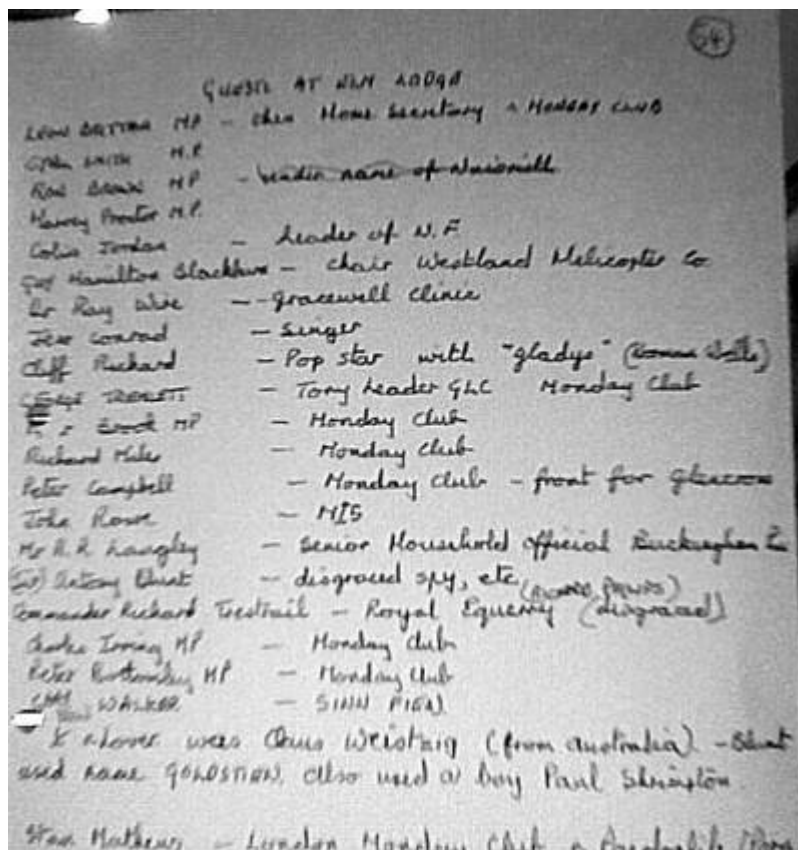 54
GUESTS AT ELM LODGE
LEON BRITTAN MP - then Home Secretary & MONDAY CLUB
CYRIL SMITH M.P.
RON BROWN MP
Harvey Proctor M.P.
Colin Jordan - Leader of N.F
Hamilton Blackburn - Chair Westland Helicopter Co
Dr Ray Wire - Gracewell Clinic
Jess Conrad - Singer
Cliff Richard - Pop star with "gladys"
GEORGE - Tory Leader GLC Monday Club
MP - Monday Club
Richard Miles - Monday Club
Peter Campbell - Monday Club - front for
John Rowe - MI5
Mr R.R Langley - Senior Household official
(Sir) Antony Blunt - disgraced spy, etc
Commander Richard Trestrail - Royal Equerry (disgraced)
Charles Irving MP - Monday Club
Peter Bottomley MP - Monday Club
WALKER - SINN FIEN
(from Australia) - Blunt
used name also used a boy Paul
Stan Mathews - London Monday Club